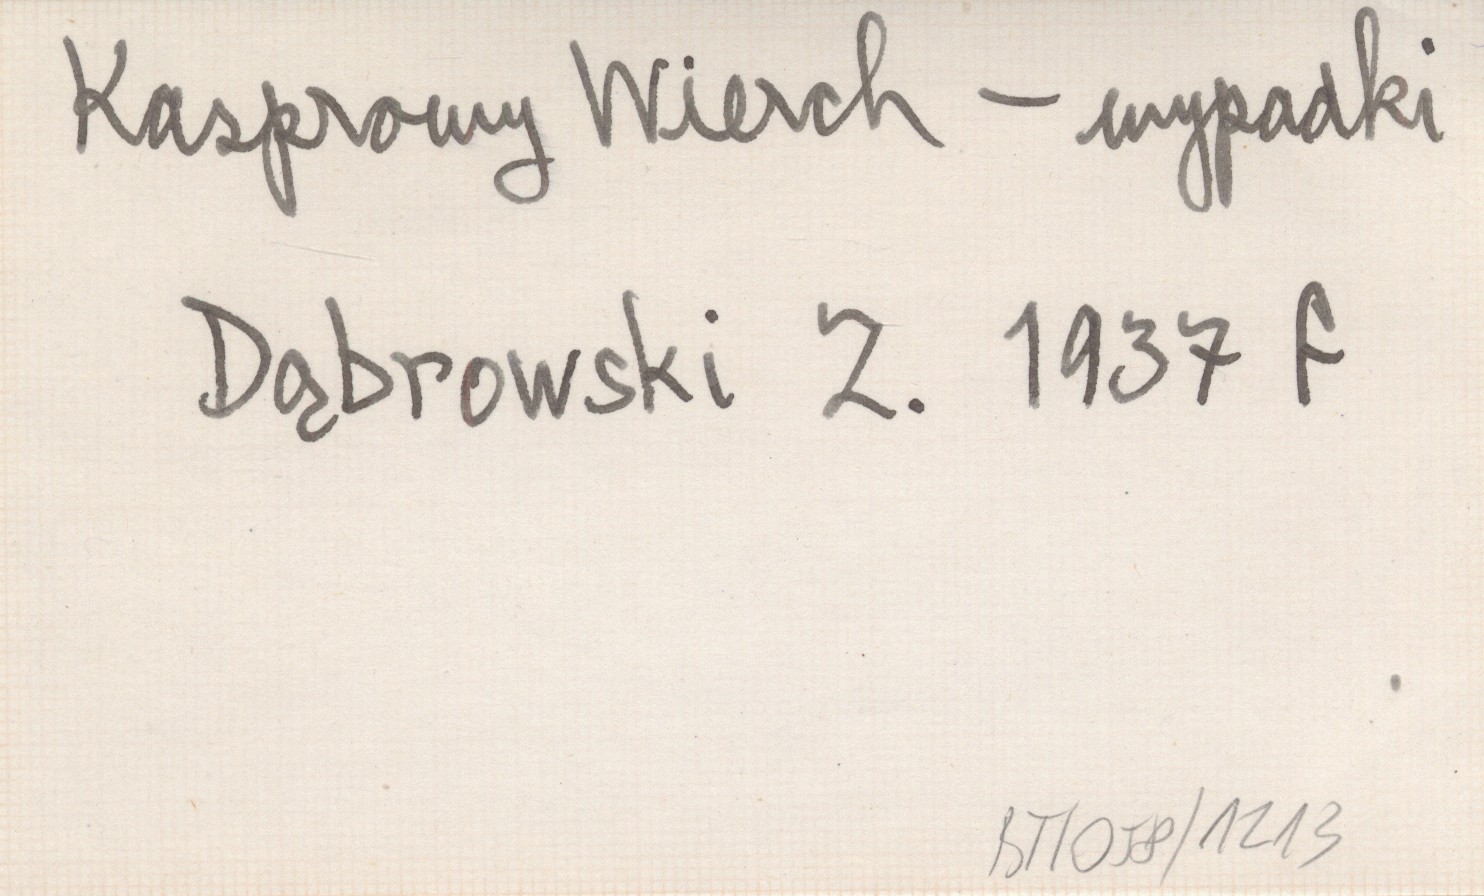 Kasprowy Wierch – wypadki
Dąbrowski Z. 1937 f
BT/058/1213